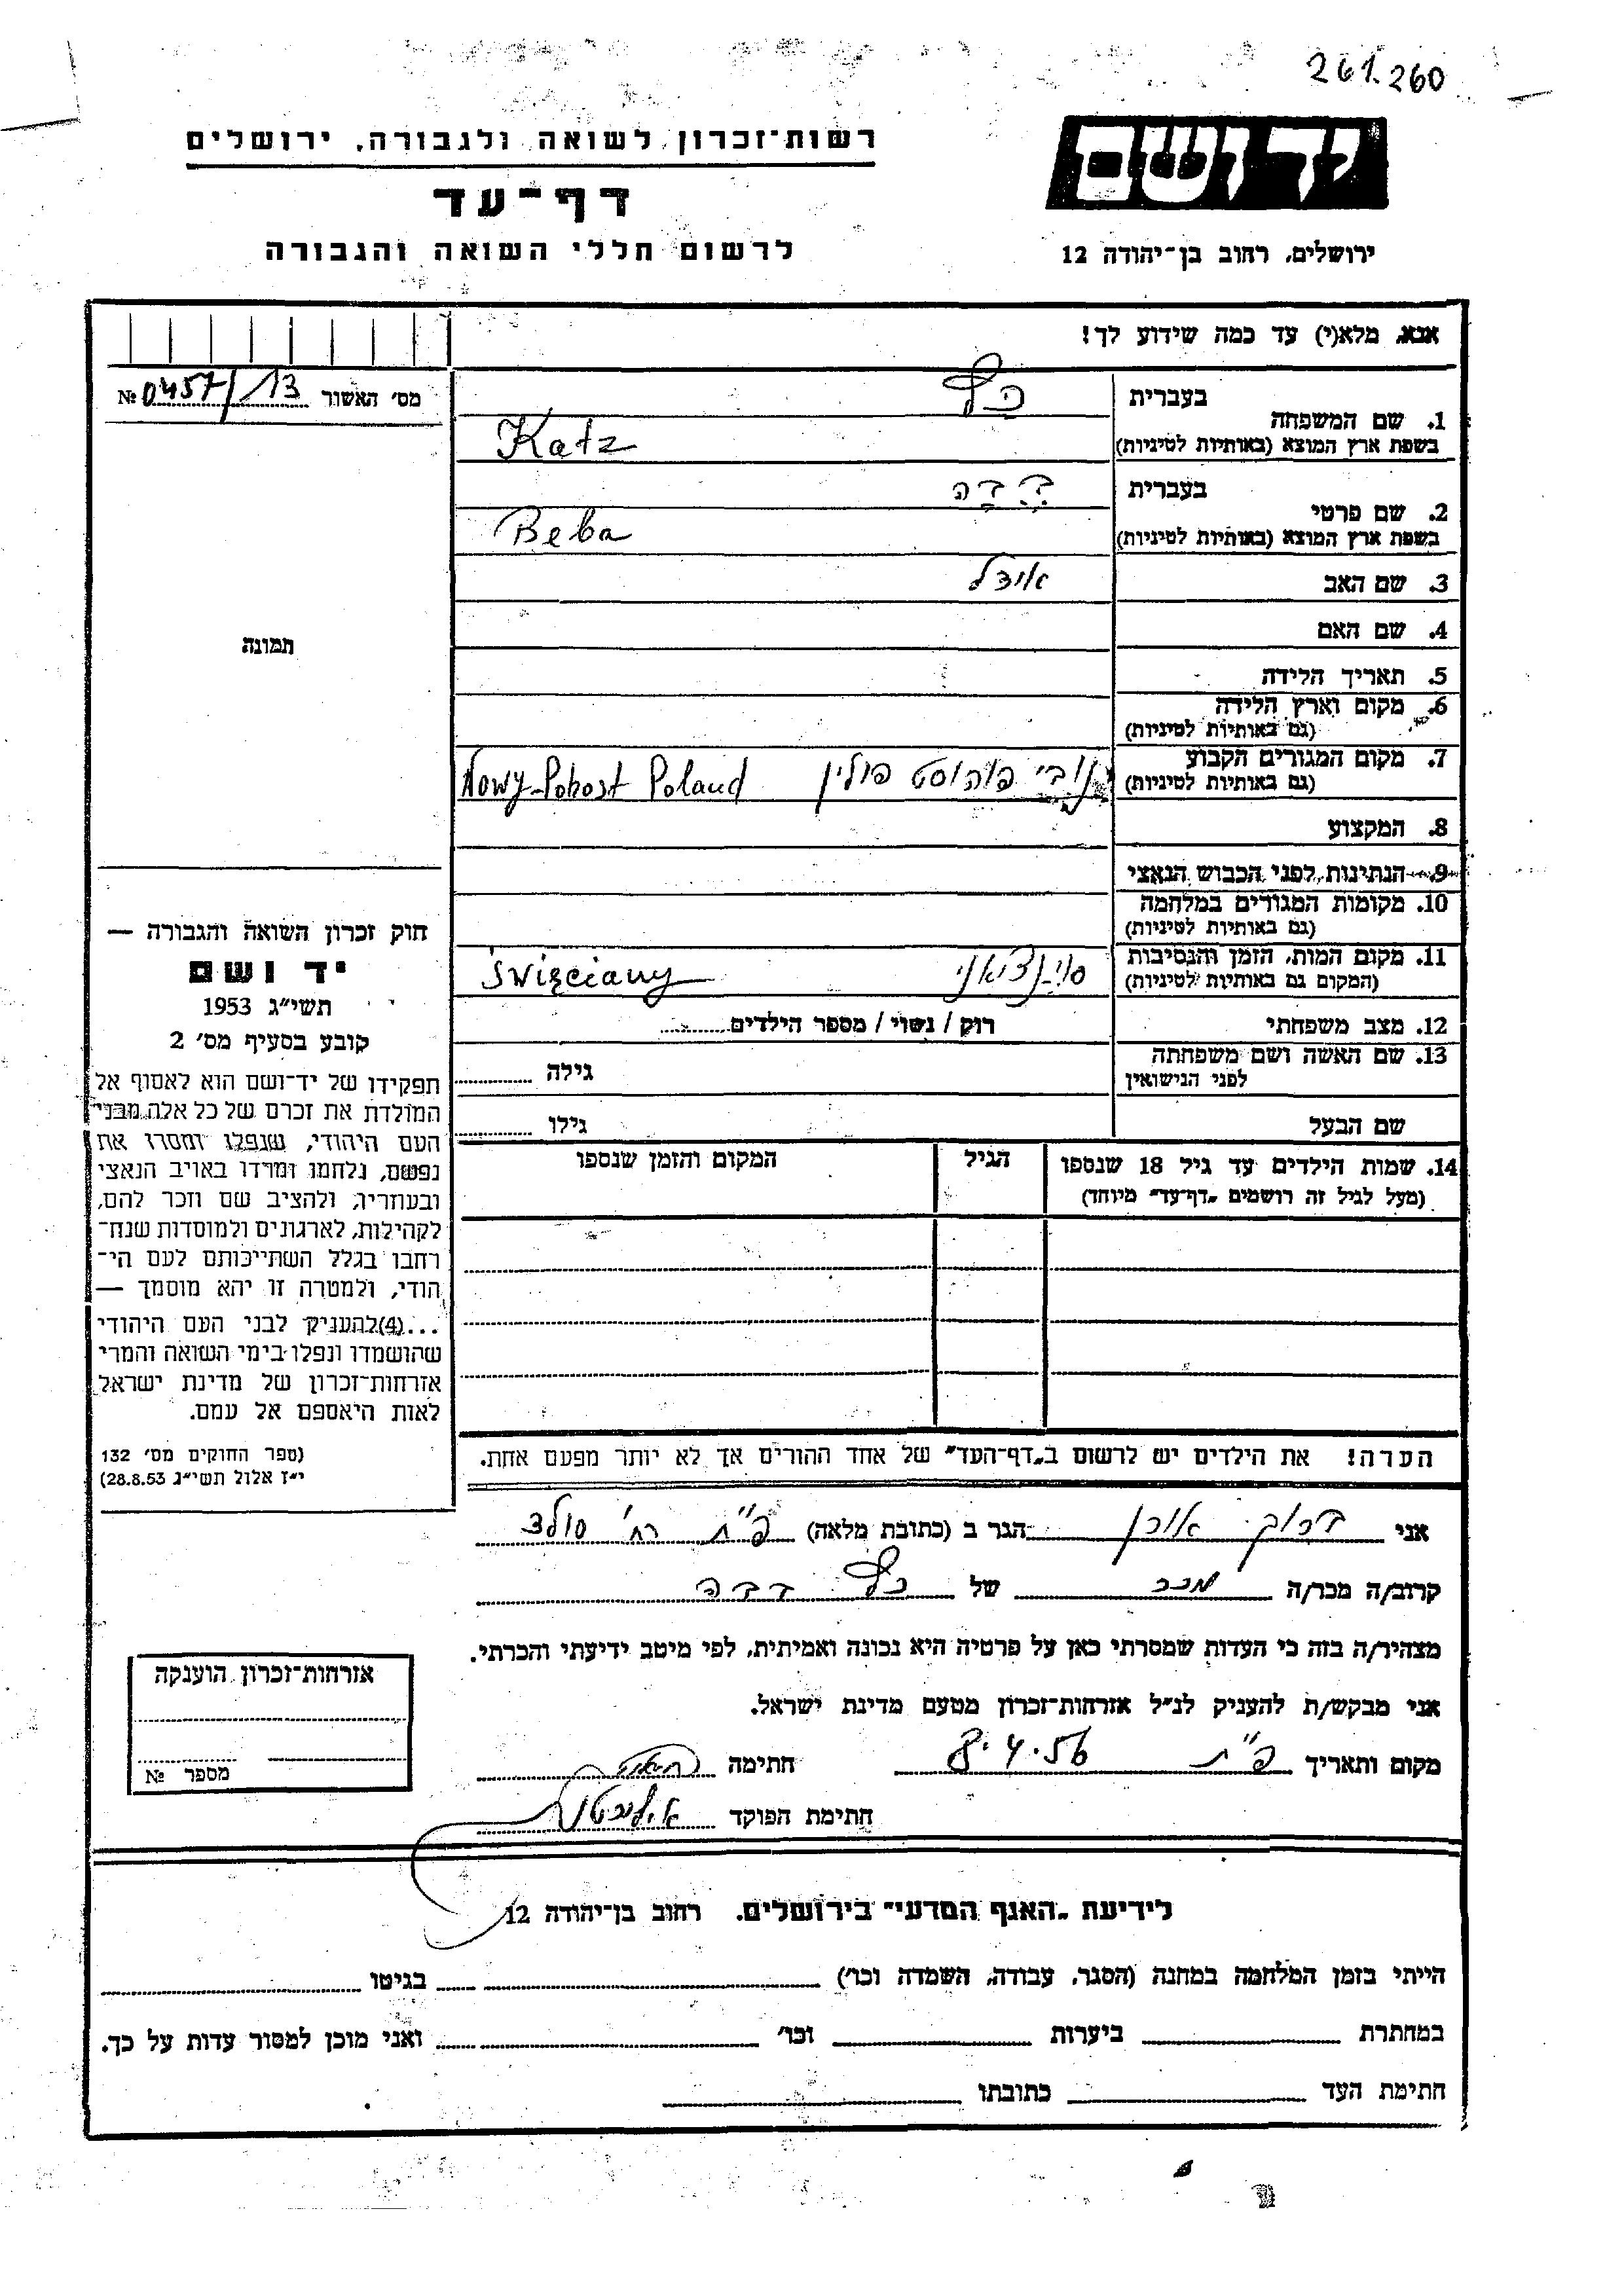 261.260
רשות־זכרון לשואה ולגבורה, ירושלים
יד ושם
דף־עד
לרשום חללי השואה והגבורה
ירושלים, רחוב בן־יהודה 12
אנא, מלא(י) עד כמה שידוע לך!
מס׳ האשור № 0457/13
1. שם המשפחה
בעברית כץ
בשפת ארץ המוצא (באותיות לטיניות) Katz
2. שם פרטי
בעברית בבה
בשפת ארץ המוצא (באותיות לטיניות) Beba
3. שם האב אידל
4. שם האם
5. תאריך הלידה
6. מקום וארץ הלידה
(גם באותיות לטיניות)
7. מקום המגורים הקבוע נובי פוהוסט פולין Nowy-Pohost Poland
(גם באותיות לטיניות)
8. המקצוע
9. הנתינות לפני הכבוש הנאצי
10. מקומות המגורים במלחמה
(גם באותיות לטיניות)
11. מקום המות, הזמן והנסיבות סוינציאני Święciany
(המקום גם באותיות לטיניות)
12. מצב משפחתי רוק / נשוי / מספר הילדים
13. שם האשה ושם משפחתה גילה
לפני הנישואין
שם הבעל גילו
14. שמות הילדים עד גיל 18 שנספו הגיל המקום והזמן שנספו
(מעל לגיל זה רושמים „דף־עד״ מיוחד)
הערה! את הילדים יש לרשום ב„דף־העד״ של אחד ההורים אך לא יותר מפעם אחת.
תמונה
חוק זכרון השואה והגבורה —
יד ושם
תשי״ג 1953
קובע בסעיף מס׳ 2
תפקידו של יד־ושם הוא לאסוף אל
המולדת את זכרם של כל אלה מבני
העם היהודי, שנפלו ומסרו את
נפשם, נלחמו ומרדו באויב הנאצי
ובעוזריו, ולהציב שם וזכר להם,
לקהילות, לארגונים ולמוסדות שנח־
רחבו בגלל השתייכותם לעם הי־
הודי, ולמטרה זו יהא מוסמך —
...(4)להעניק לבני העם היהודי
שהושמדו ונפלו בימי השואה והמרי
אזרחות־זכרון של מדינת ישראל
לאות היאספם אל עמם.
(ספר החוקים מס׳ 132
י״ז אלול תשי״ג 28.8.53)
אני אורן הגר ב (כתובת מלאה) פ״ת רח׳ סולד
קרוב/ה מכר/ה מכר של כץ בבה
מצהיר/ה בזה כי העדות שמסרתי כאן על פרטיה היא נכונה ואמיתית, לפי מיטב ידיעתי והכרתי.
אני מבקש/ת להעניק לנ״ל אזרחות־זכרון מטעם מדינת ישראל.
מקום ותאריך פ״ת 8.4.56 חתימה
חתימת הפוקד
אזרחות־זכרון הוענקה
מספר №
לידיעת „האגף המדעי״ בירושלים, רחוב בן־יהודה 12
הייתי בזמן המלחמה במחנה (הסגר, עבודה, השמדה וכו׳) בגיטו
במחתרת ביערות וכו׳ ואני מוכן למסור עדות על כך.
חתימת העד כתובתו